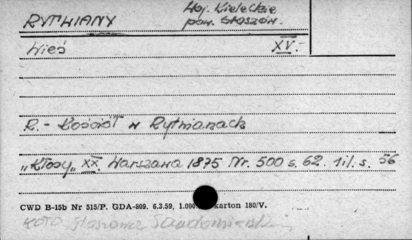 RYTWIANY
Woj. Kieleckie
pow. Staszów.
Wieś XV.-
R. - Kościół w Rytwianach
„Kłosy„ XX. Warszawa 1875 Nr. 500 s. 62. il. s. 56
CWD B-15b Nr 515/P. GDA-809. 6.3.59, 1.000 karton 180/V.